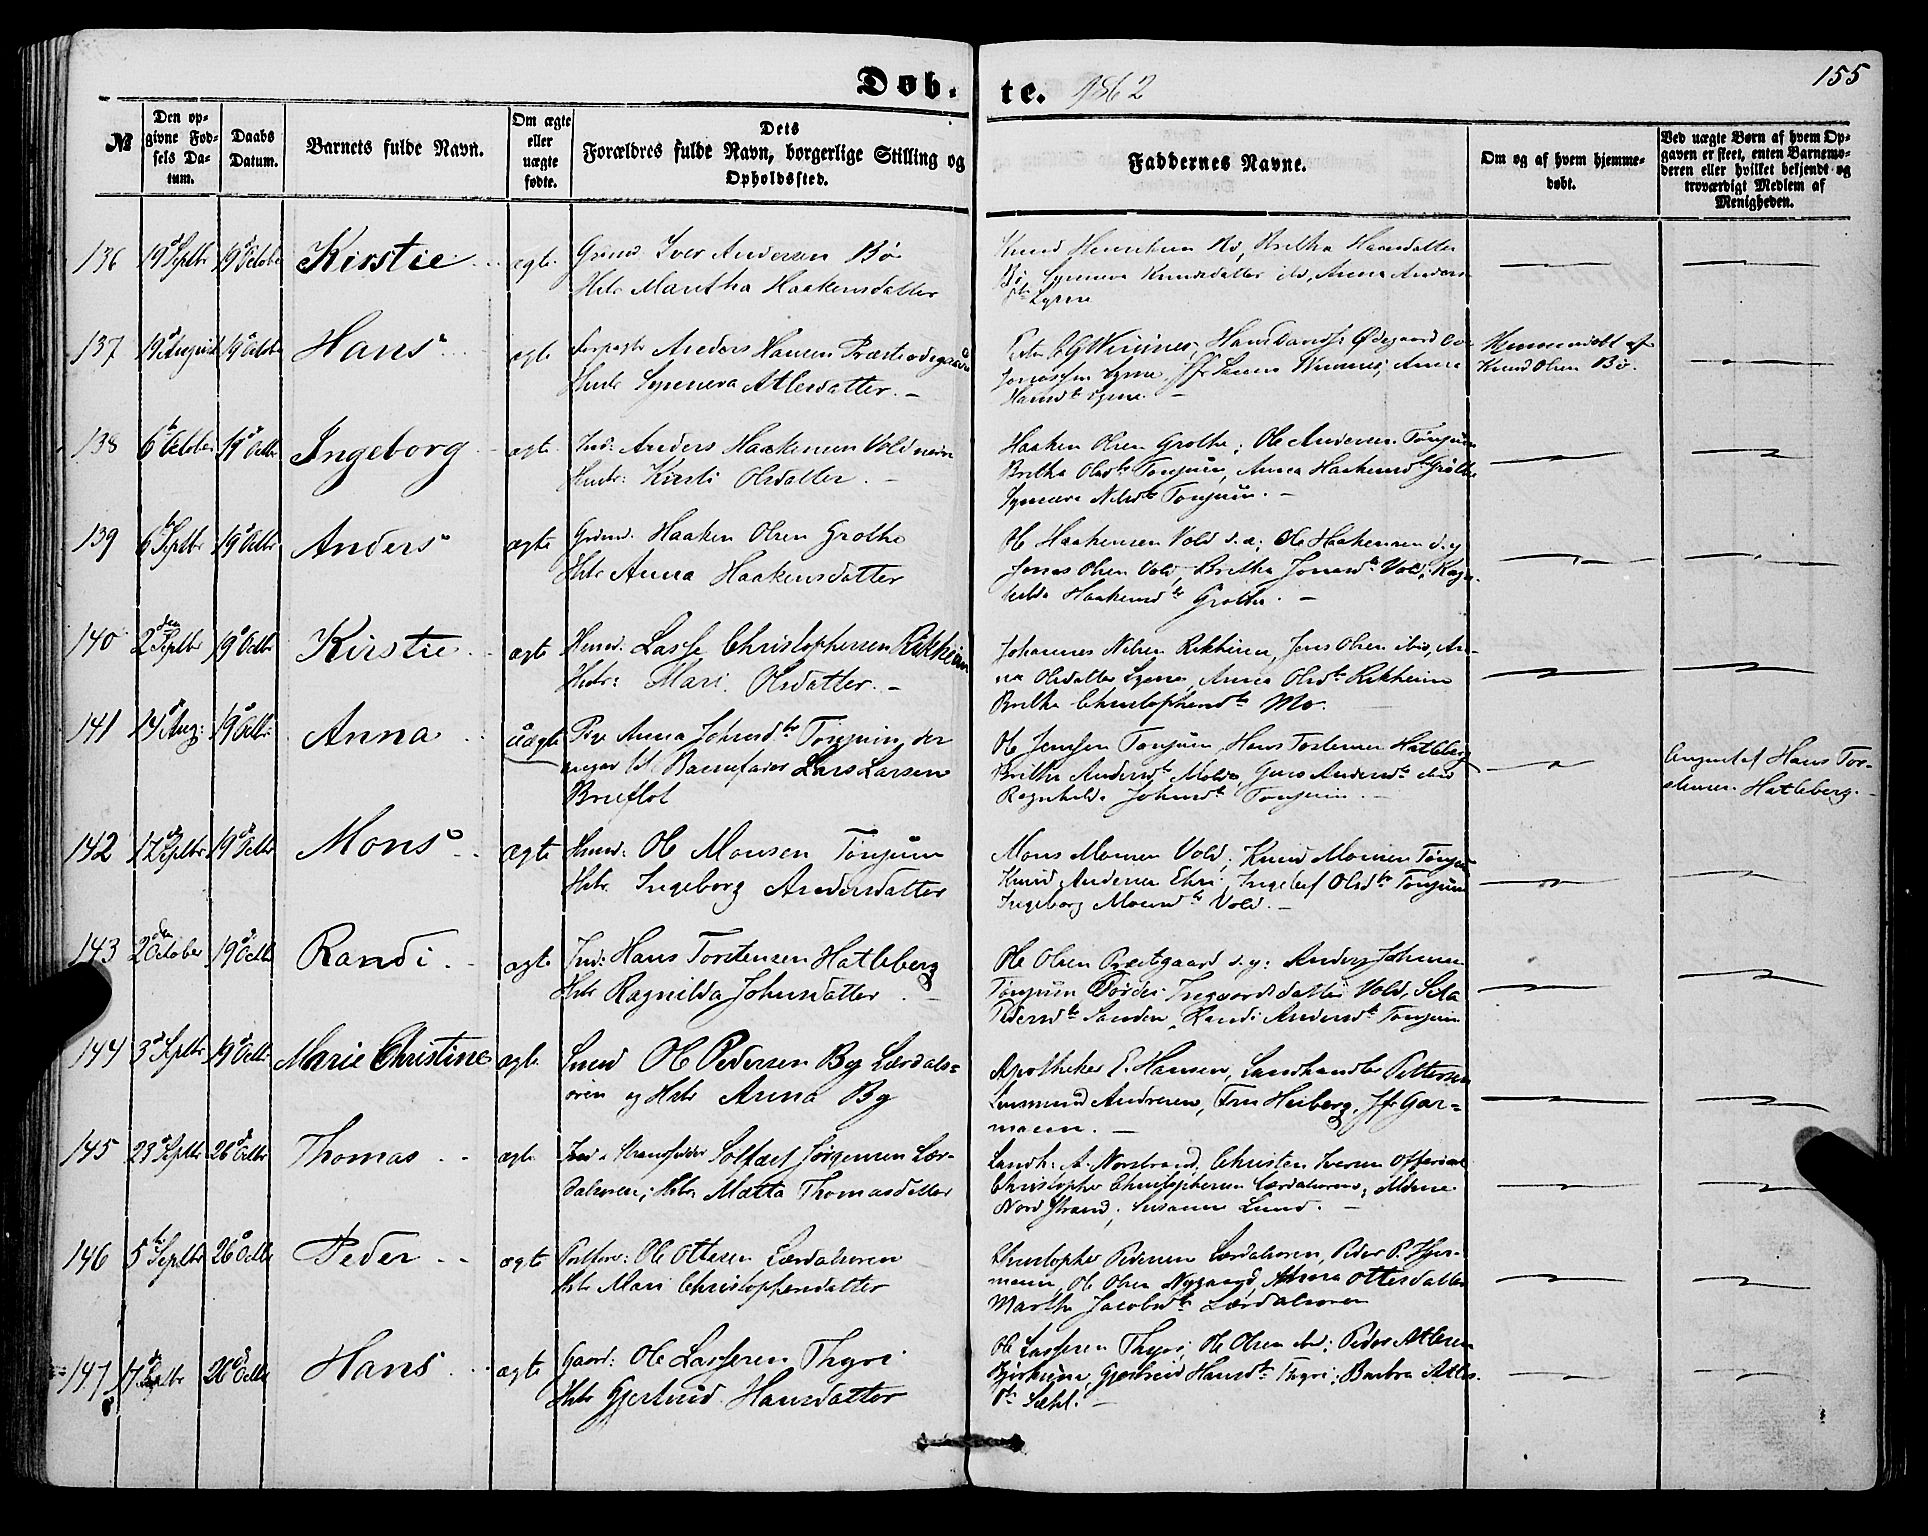 155
Døb-te. 1862
№
Den opgivne Fødsels Datum.
Daabs Datum.
Barnets fulde Navn.
Om ægte eller uægte fødte.
Dets Forældres fulde Navn, borgerlige Stilling og Opholdssted.
Faddernes Navne.
Om og af hvem hjemmedøbt.
Ved uægte Børn af hvem Opgaven er skeet, enten Barnemoderen eller hvilket bekjendt og troværdigt Medlem af Menigheden.
136 19d Septbr 19d October Kirstie ægte Iver Andersen Bø
Hstr Martha Haakensdatter
Knud Henriksen Bø, Brithe Hansdatter
Bø, Synneva Knudsdatter ibd, Anna Anders-
dtr Lysne
137 19d August 19d Octobr Hans ægte Anders Hansen Præsteødegaard
Hustr Synneva Atlesdatter. -
Ødegaard
Lysne, Jfr Wiinnes, Anna
Hansdtr Lysne. -
Hjemmedøbt af
Knud Olsen Bø.
138 6te Octobr 19d Octbr Ingeborg ægte Ind: Anders Haakensen Vold
Hustr: Kirsti Olsdatter. -
Haaken Olsen Grothe; Ole Andersen Tønjum
Brithe Olsdtr Tønjum, Anna Haakensdtr Grothe
Nilsdtr Tønjum. -
139 6te Septbr 19d Octbr Anders ægte Haaken Olsen Grothe
Hstr Anna Haakensdatter
Ole Haakensen Vold d.æ; Ole Haakensen d.y
Jonas Olsen Vold, Brithe Jonasdtr Vold, Ragn-
hilda Haakensdtr Grothe. -
140 2den Septbr 19d Octbr Kirstie ægte Lasse Christophersen Rikheim
Hstr: Mari Olsdatter. -
Johannes Nilsen Rikheim, Jens Olsen ibid, An-
na Olsdatter Lysne, Anna Olsdtr Rikheim
Brithe Christophersdtr Mo.
141 14d Aug: 19d Octbr: Anna uægte Pige Anna Johnsdtr Tønjum, der
angav til Barnefader Lars Larsen
Bruflot
Ole Jensen Tønjum, Hans Torstensen Hatleberg
Brithe Andersdtr Molde, Andersdtr ibid
Ragnhilda Johnsdtr Tønjum. -
Angivet af Hans Tor-
stensen Hatleberg. -
142 Septbr 19d Octbr Mons ægte Ole Monsen Tønjum
Hstr. Ingeborg Andersdatter
Mons Monsen Vold, Knud Monsen Tønjum
Knud Andersen Ehri, Olsdtr Tønjum
Ingeborg Monsdtr Vold. -
143 2den October 19d Octbr Randi ægte Ind: Hans Torstensen Hatleberg
Hstr Ragnilda Johnsdatter. -
Ole Olsen Præstgaard d.y; Anders Johnsen
Tønjum Vold,
Pedersdtr Sanden, Randi Andersdtr Tønjum
144 3d Septbr 19d Octbr Marie Christine ægte Smed Ole Pedersen By Lærdals-
øren og Hstr Anna By
Apotheker E. Hansen, Landhandler Pettersen
Lensmand Andresen, Fru Heiberg, Jfr Gar-
mann. -
145 23d Septbr 26d Octbr Thomas ægte Strandsidder Solfæst Jørgensen Lær-
dalsøren; Hstr Mætta Thomasdatter
Landh: A. Norstrand, Christen Iversen Offerdal
Christopher Christophersen Lærdalsøren,
Nordstrand, Susanne Lund. -
146 5te Septbr 26d Octbr Peder ægte Ole Ottesen Lærdalsøren
Hstr Mari Christophersdatter
Christopher Pedersen Lærdalsøren, Peder P.
Ole Olsen Nygaard, Anna Ottesdatter
Marthe Jacobsdtr Lærdalsøren
147 17d Septbr 26d Octbr Hans ægte Gaard: Ole Lassesen Thyri
Hstr Gjertrud Hansdatter
Ole Lassesen Thyri, Ole Olsen ibid; Peder Atlesen
Bjørkum, Gjertrud Hansdtr Thyri; Barbra Atles-
dtr Sæhl. -